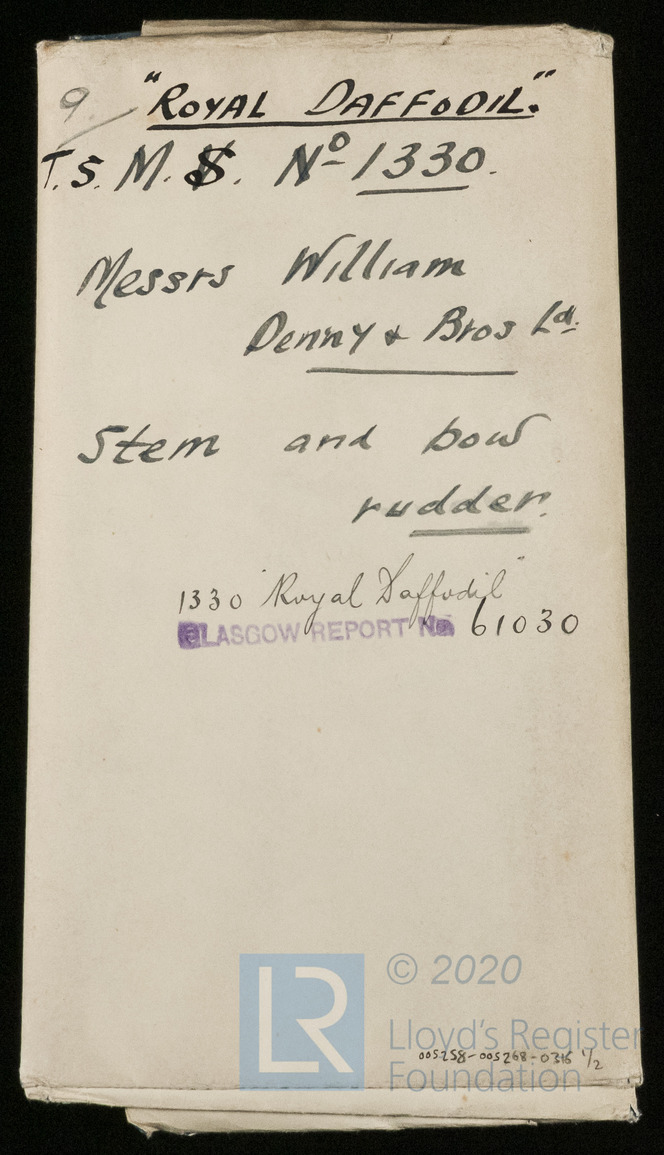 9. "ROYAL DAFFODIL".
T.S. M. S. Nº 1330.
Messrs William
Denny & Bros Ld.
Stem and bow
rudder.
1330 "Royal Daffodil"
GLASGOW REPORT No 61030
LR
© 2020
Lloyd's Register
005258-005268-0316 1/2
Foundation